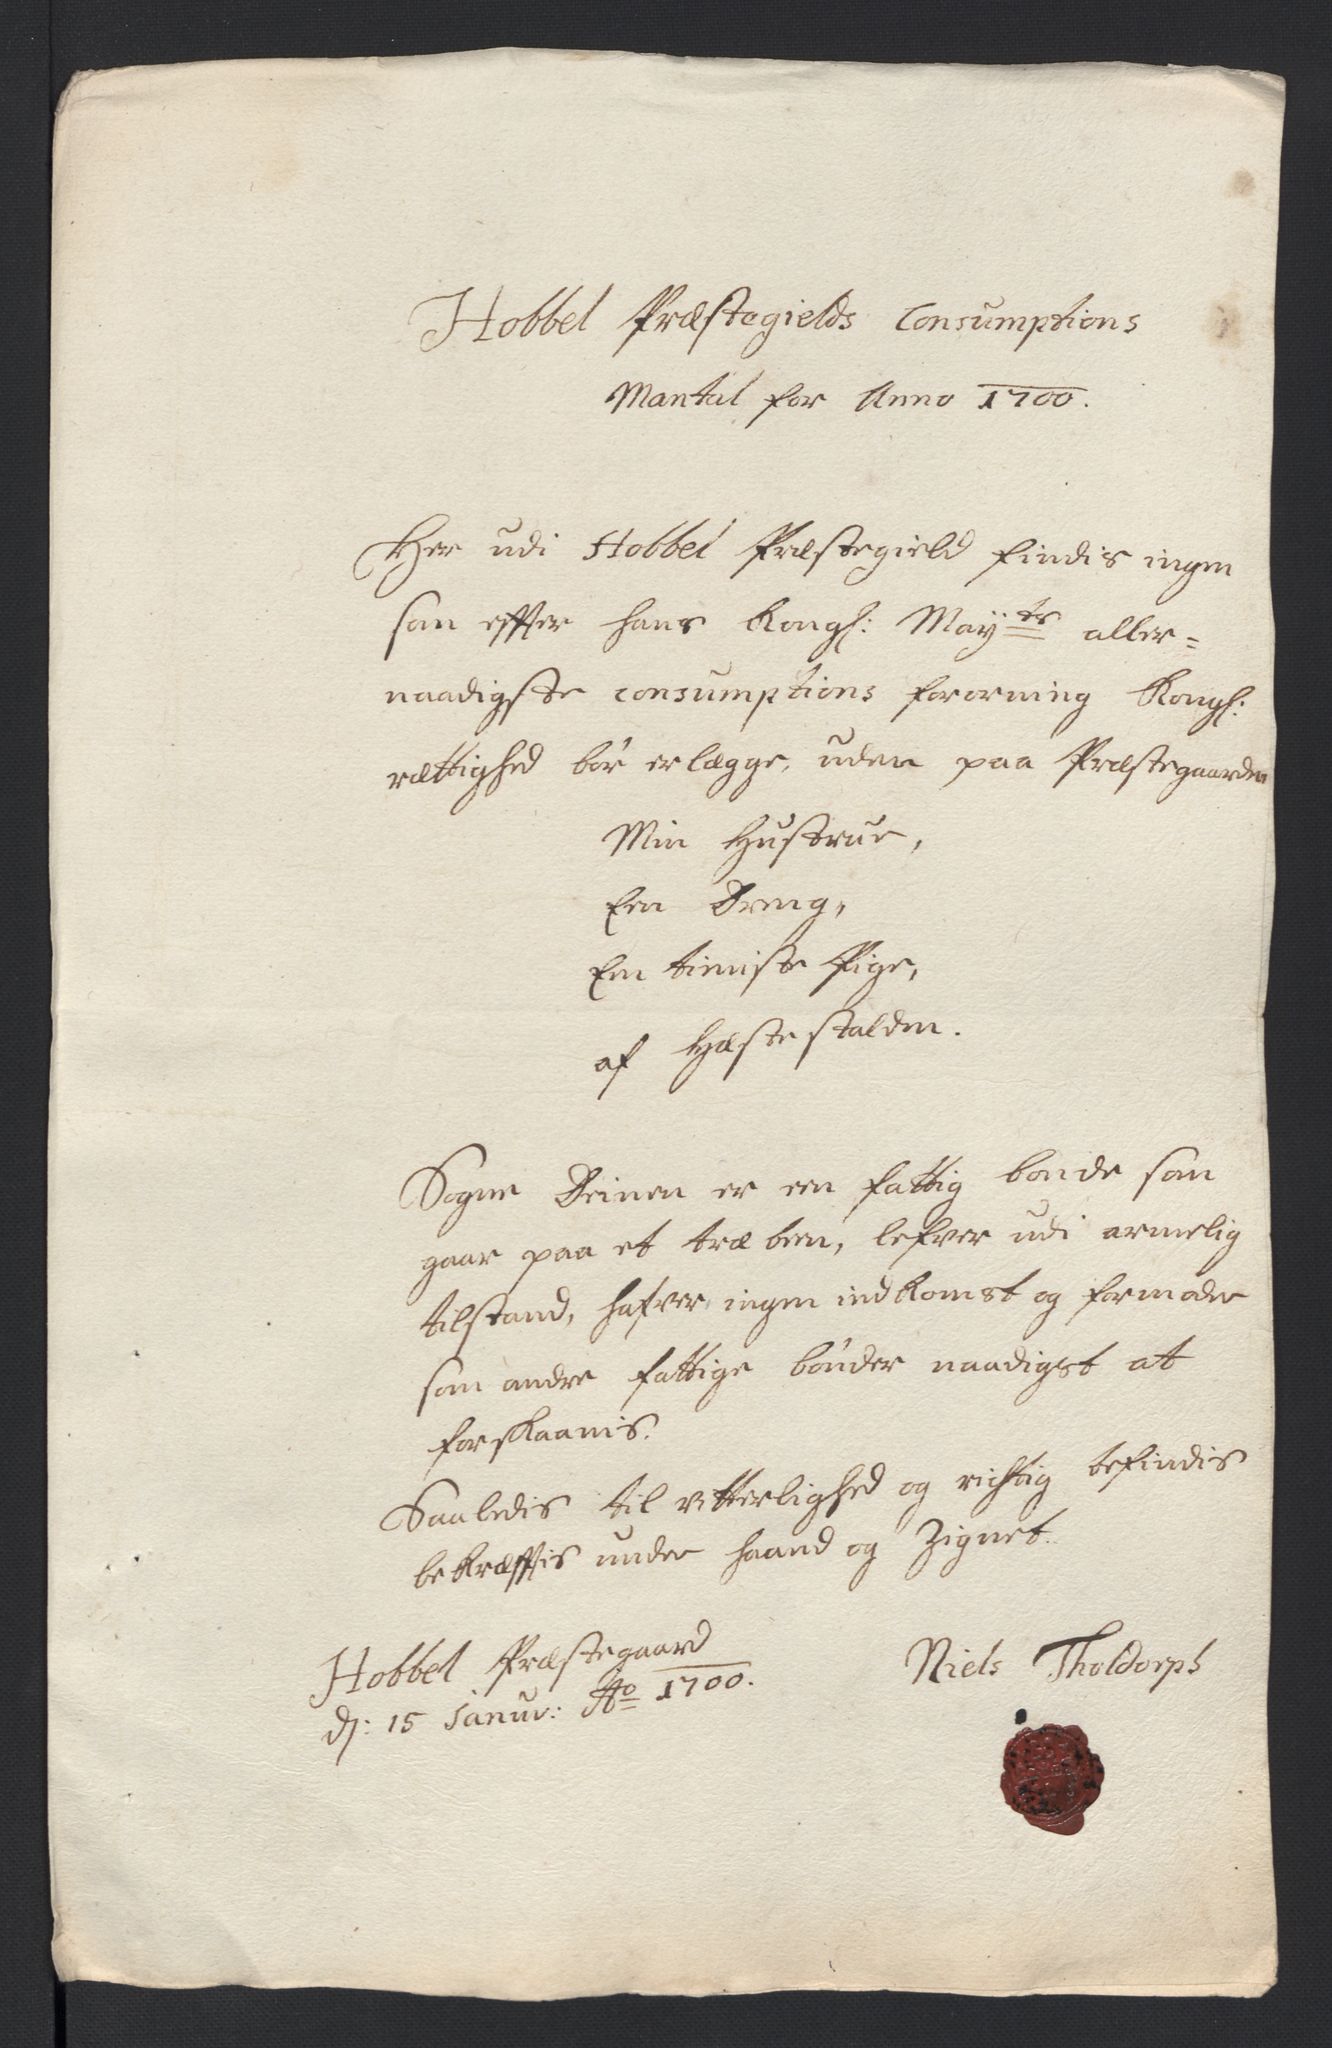 Hobbel Præstegields Consumptions
Mantal for Anno 1700.
Her udi Hobbel Præstegield findis ingen
som effter hans Kongl: Mayts aller=
naadigste consumptions fororning Kongl:
rættighed bör erlægge, uden paa Præstegaarden
Min Hustrue,
Een Dreng,
Een tieniste Pige,
af Hæstestalden.
Sogne Deinen er een fattig bonde som
gaar paa et træ been, lefver udi armelig
tilstand, hafver ingen indkomst og formoder
som andre fattige bönder naadigst at
forskaanis.
Saaledis til vitterlighed og richtig befindis
bekræfftis under haand og Zignet.
Hobbel Præstegaard
dj: 15 Januv: Ao 1700.
Niels Tholdorph